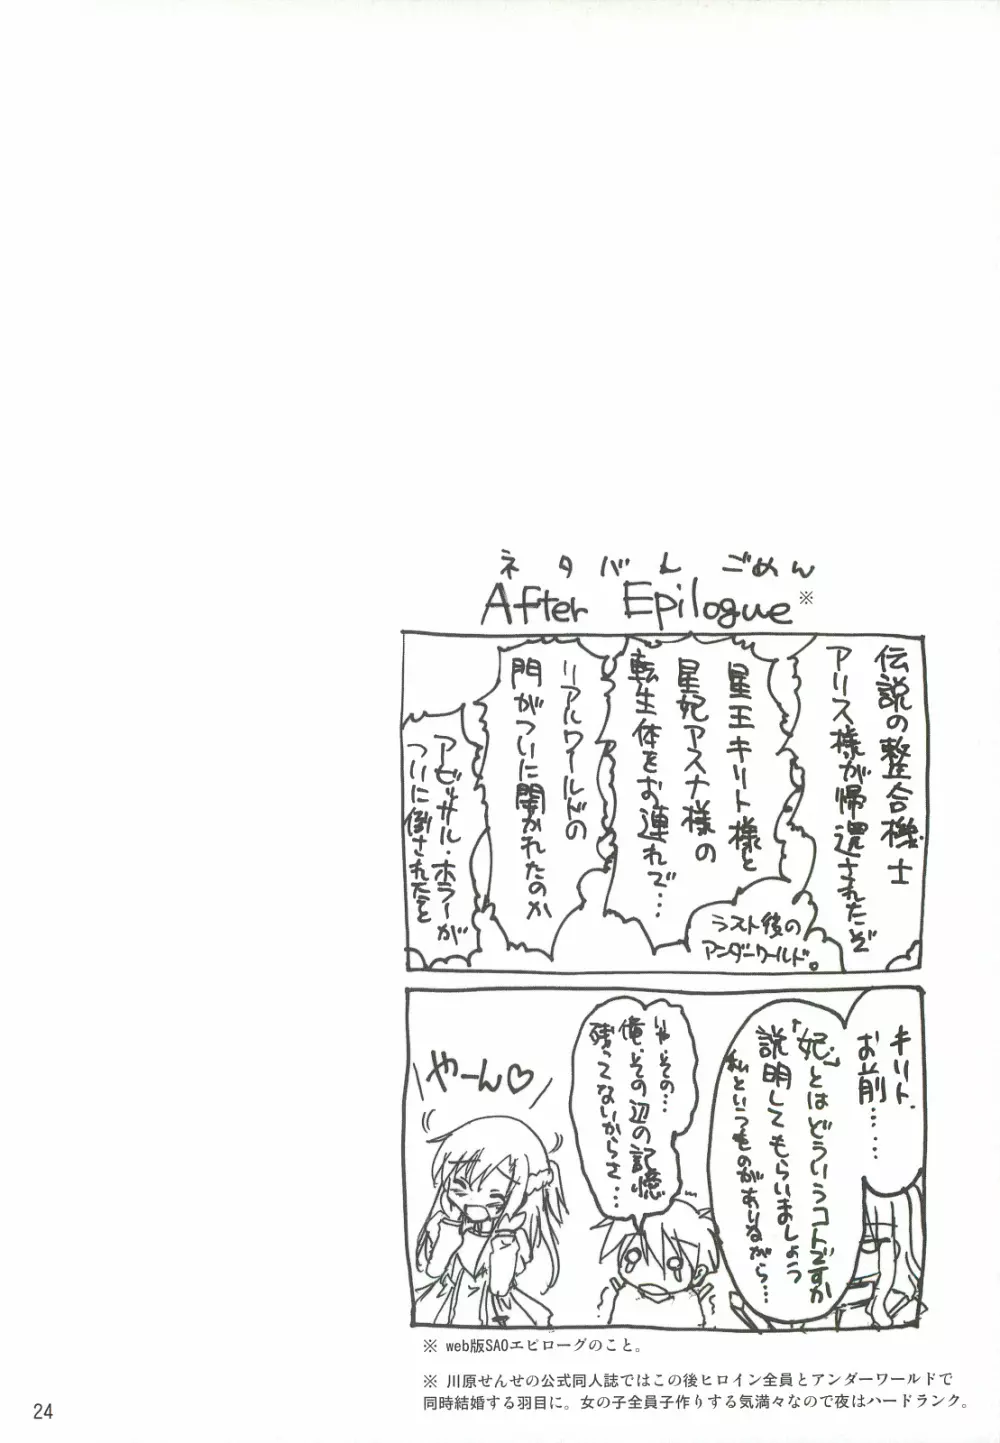 ネタバレごめん
After Epilogue※
伝説の整合機士
アリス様が帰還されたぞ
星王キリト様と
星妃アスナ様の
転生体をお連れで…
リアルワールドの
門がついに開かれたのか
アビッサル・ホラーが
ついに倒されたと
ラスト後の
アンダーワールド。
キリト、
お前……
「妃」とはどういうコトですか
説明してもらいましょう
私というものがありながら…
いやその…
俺、その辺の記憶
残ってないからさ…
やーん♡
※ web版SAOエピローグのこと。
※ 川原せんせの公式同人誌ではこの後ヒロイン全員とアンダーワールドで
同時結婚する羽目に。女の子全員子作りする気満々なので夜はハードランク。
24